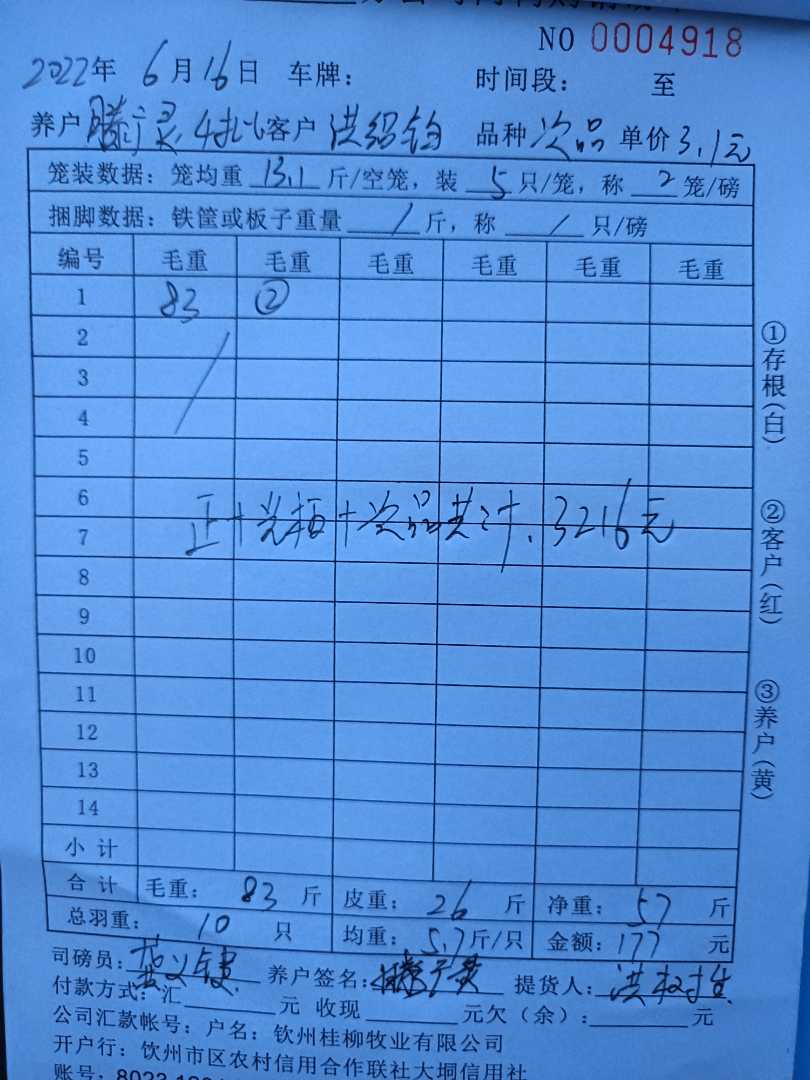 NO 0004918
2022年 6月16日 车牌: 时间段: 至
养户 滕广灵 4批 客户 洪绍钧 品种 次品 单价 3.1元
笼装数据: 笼均重 13.1 斤/空笼, 装 5 只/笼, 称 2 笼/磅
捆脚数据: 铁筐或板子重量 / 斤, 称 / 只/磅
编号 毛重 毛重 毛重 毛重 毛重 毛重
1 83 ②
2
3
4
5
6
7
正+光柄+次品共计. 3216元
8
9
10
11
12
13
14
小 计
合 计 毛重: 83 斤 皮重: 26 斤 净重: 57 斤
总羽重: 10 只 均重: 5.7 斤/只 金额: 177 元
司磅员: 养户签名: 提货人: 洪
付款方式: 汇 元 收现 元欠(余): 元
公司汇款帐号: 户名: 钦州桂柳牧业有限公司
开户行: 钦州市区农村信用合作联社大垌信用社
账号: 8023
①存根(白)
②客户(红)
③养户(黄)